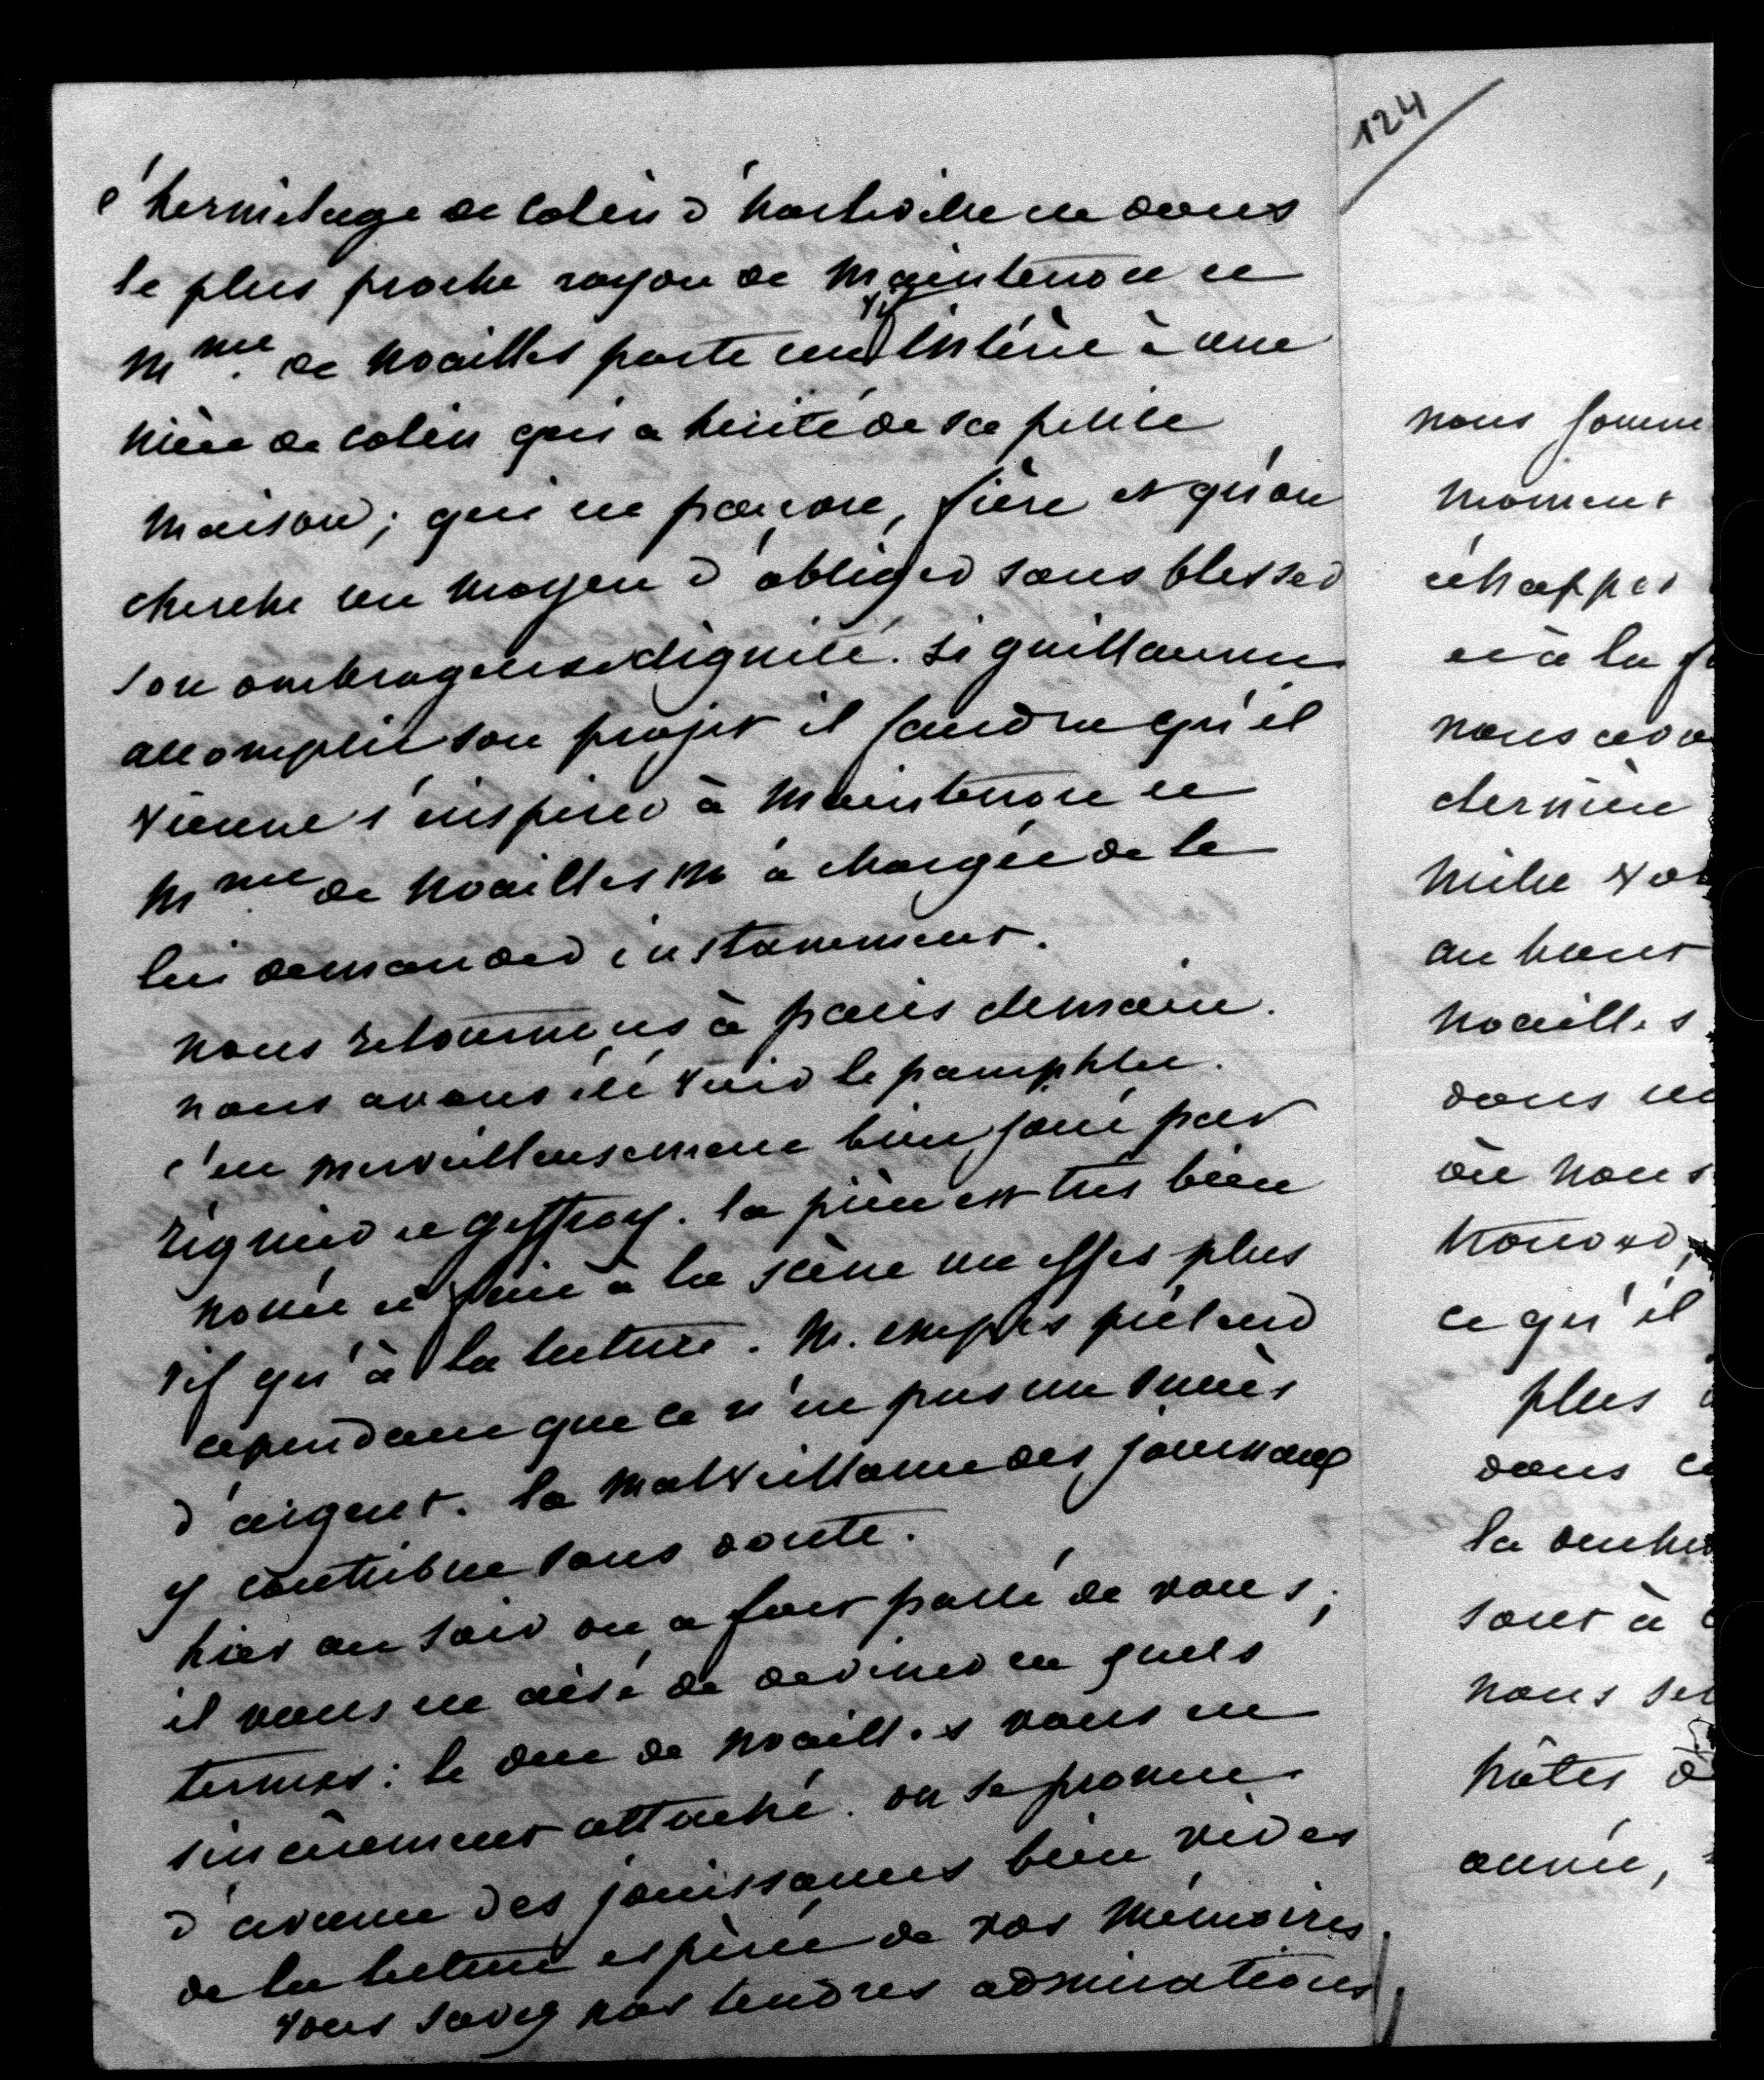 124
l'hermitage de Colin d'harleville est dans
le plus proche rayon de Maintenon et
Mme de Noailles porte un vif intérêt à une
nièce de Colin qui a hérité de sa petite
maison; qui est pauvre, fière et qu'on
cherche un moyen d'obliger sans blesser
son ombrageuse dignité. Si guillaume
accomplit son projet il faudra qu'il
vienne s'inspirer à Maintenon et
Mme de Noailles m'a chargée de le
lui demander instamment.
nous retournons à paris demain.
nous avons été voir le pamphlet.
c'est merveilleusement bien joué par
régnier et geffroy. la pièce est très bien
nouée et fait à la scène un effet plus
vif qu'à la lecture. M. empis prétend
cependant que ce n'est pas un succès
d'argent. la malveillance des journaux
y contribue sans doute.
hier au soir on a fort parlé de vous;
il vous est aisé de deviner en quels
termes: le duc de Noailles vous est
sincèrement attaché. on se promet
d'avance des jouissances bien vives
de la lecture espérée de vos Mémoires
vous savez nos tendres admirations
nous somme
moment
échapper
et à la
nous avo
dernière
mille
au haut
Noailles
dans
où nous
ce qu'il
plus
dans
la
sont à
nous
hôtes
année,